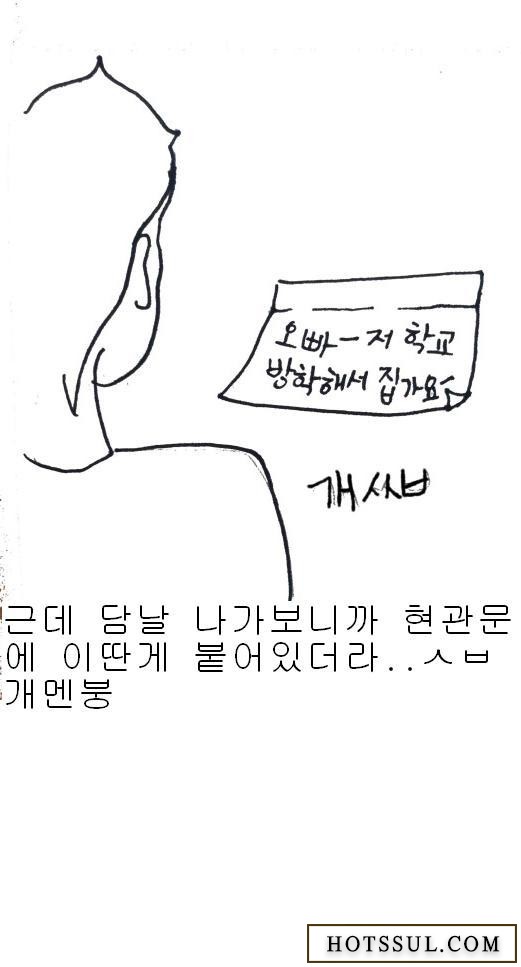 오빠 - 저 학교
방학해서 집가요~
개 ㅆㅂ
근데 담날 나가보니까 현관문
에 이딴게 붙어있더라..ㅅㅂ
개멘붕
HOTSSUL.COM